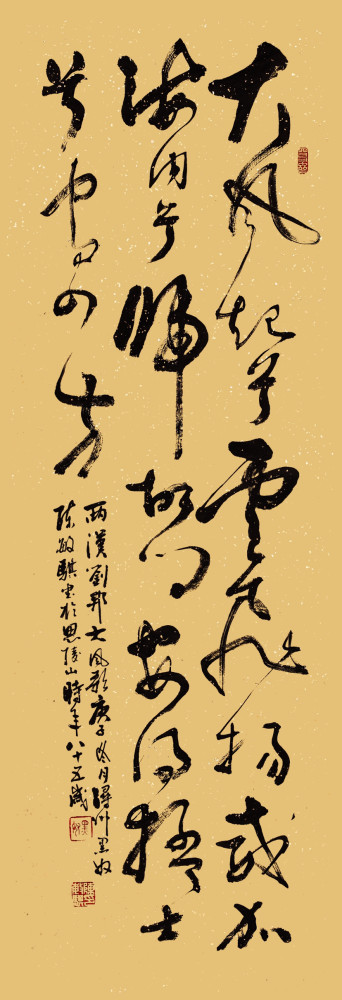 大風起兮雲飛揚威加
海内兮歸故鄉安得猛士
兮守四方
漢劉邦大風歌庚子冬月州黑奴
陳騏書於思陵山時年八十五歲